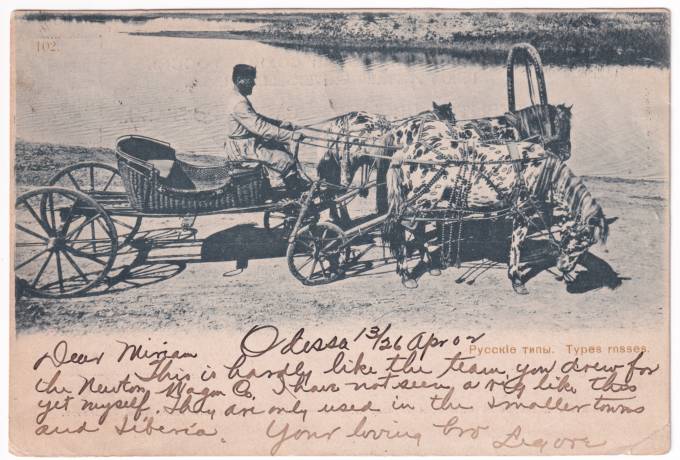 102.
Русскіе типы. Types russes.
Odessa 13/26 Apr 02
Dear Miriam
This is hardly like the team you drew for
the Newton Wagon Co. I have not seen a rig like this
yet myself. They are only used in the smaller towns
and Siberia. Your loving bro